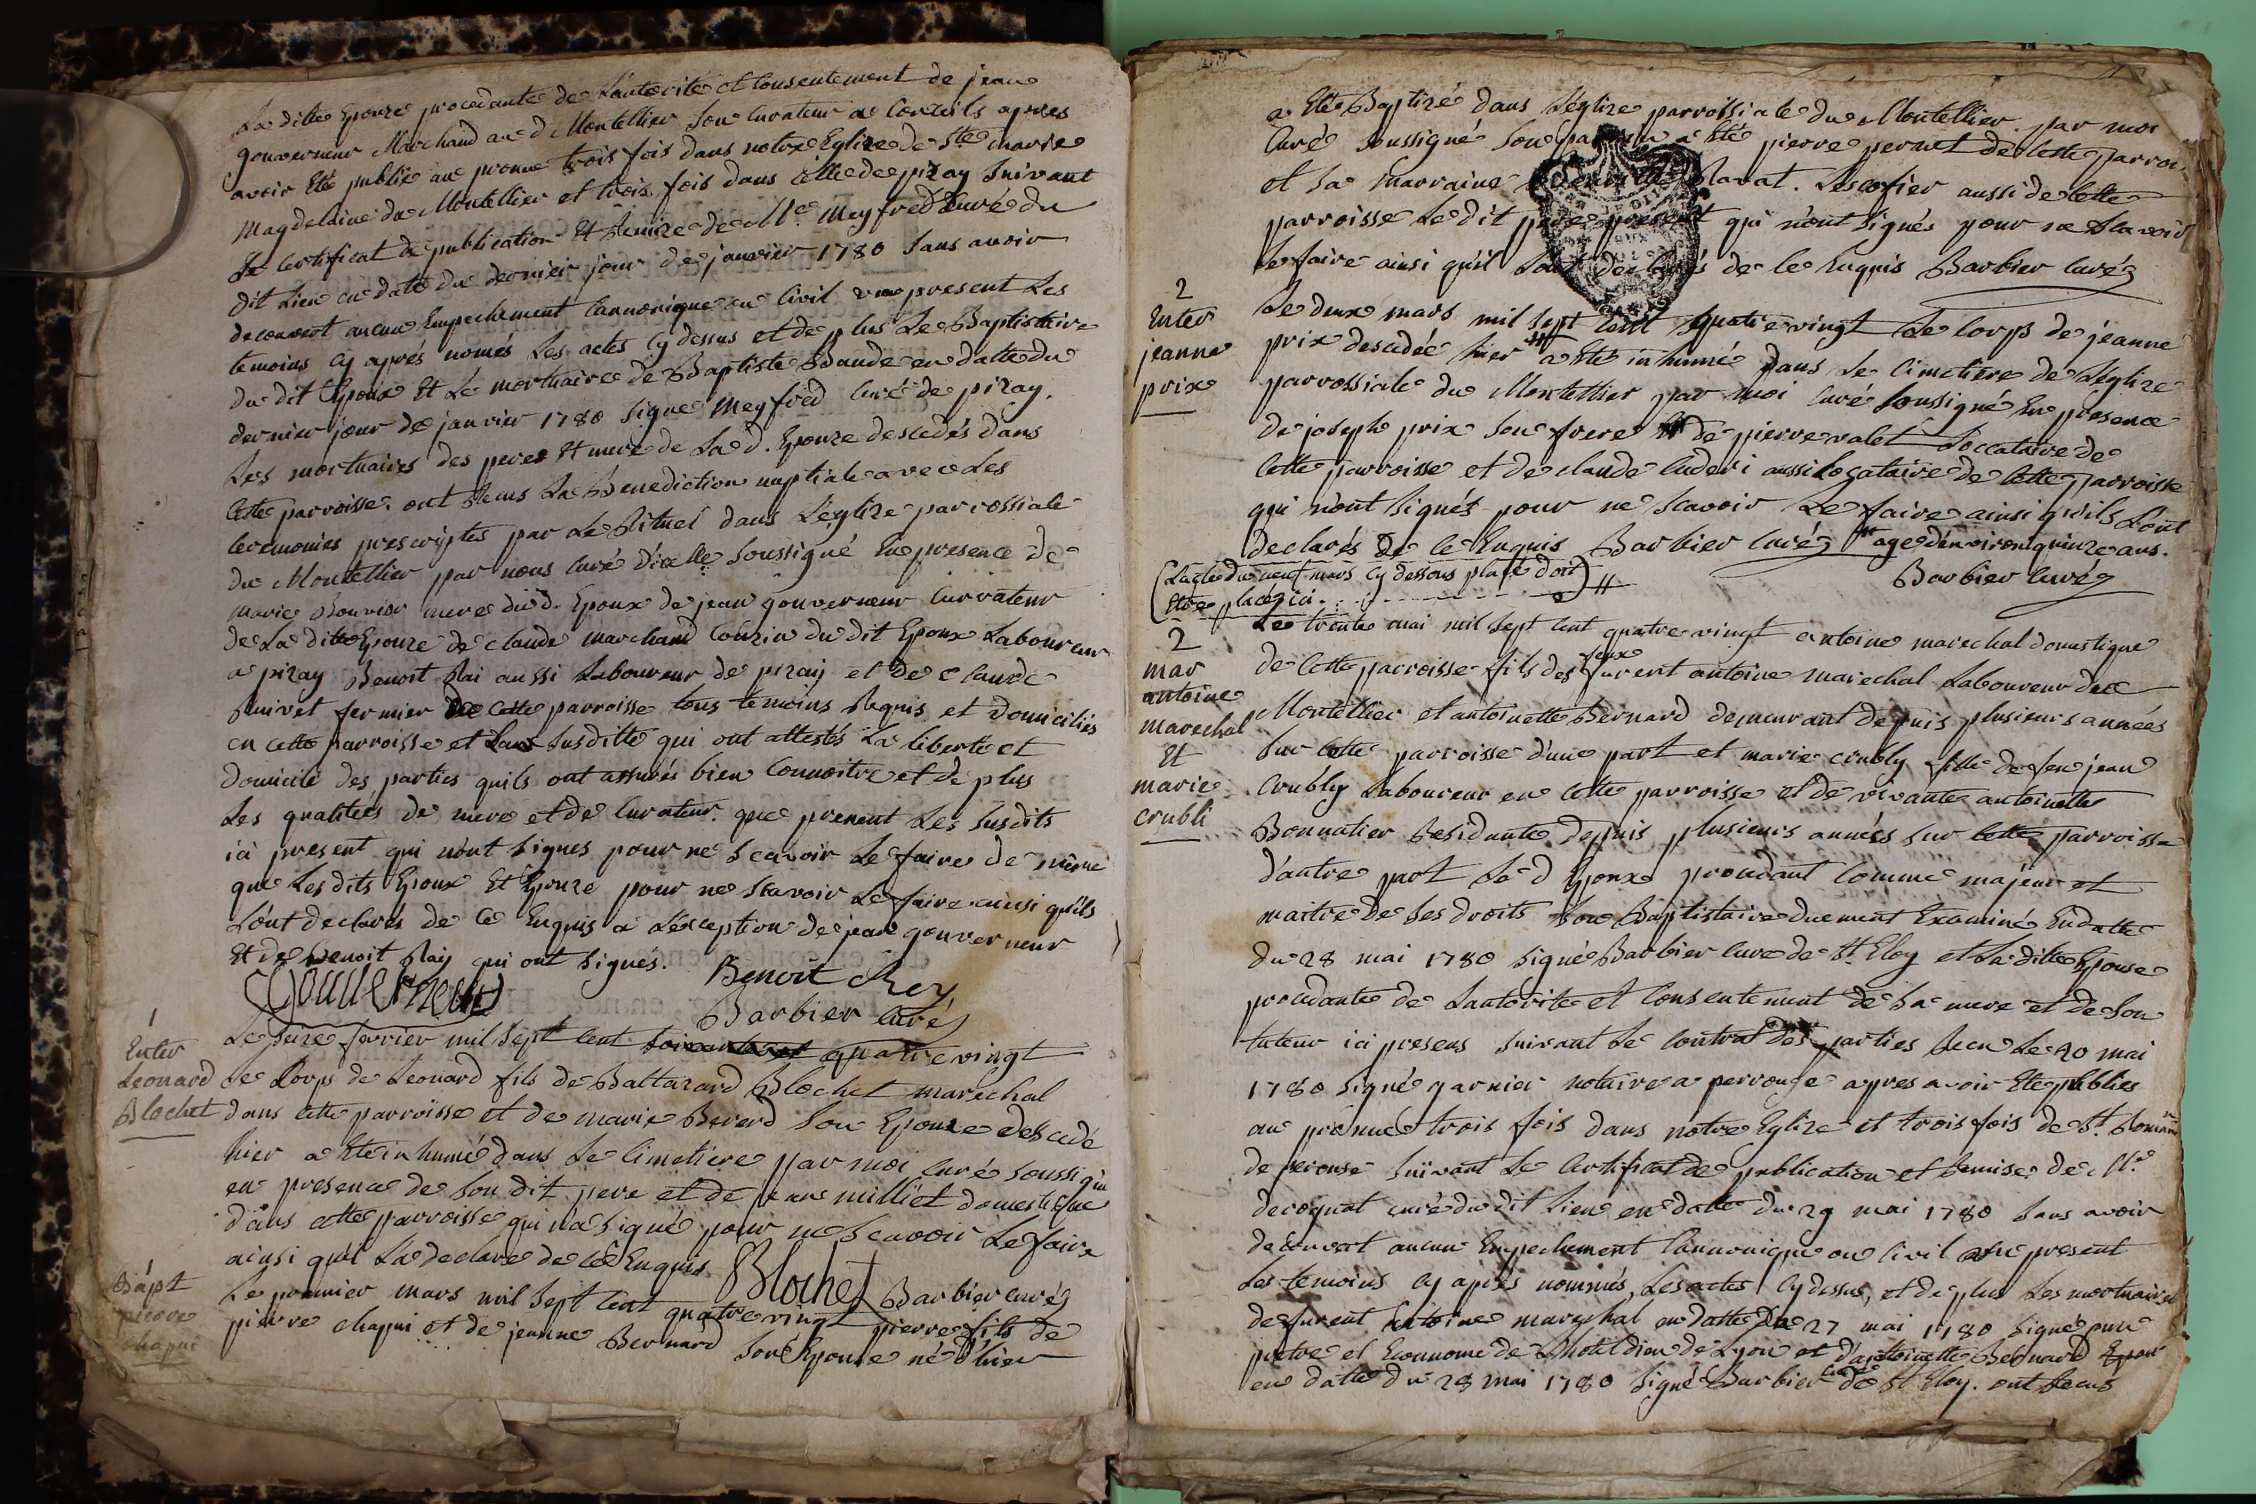 La ditte Epouze procedante de L'autorité et Consentement de jean
gouverneur Marchand au d Montellier son Curateur a Conseils apres
avoir Eté publié au pronne trois fois dans notre Eglize de Ste marie
Magdelaine du Montellier et trois fois dans celle de pizay suivant
Le Certificat de publication Et Remize de Mre Meyfred Curé du
dit Lieu en date du dernier jour de janvier 1780 sans avoir
decouvert aucun Empechement Cannonique ou Civil vue present Les
temoins cy aprés només Les actes cy dessus et de plus Le Baptistaire
du dit Epoux Et Le mortuaire de Baptiste Baude en datte du
dernier jour de janvier 1780 signé Meyfred Curé de pizay.
Les mortuaires des peres Et mere de La d. Epouze descedés dans
Cette parroisse. ont Recus La Bénédiction nuptiale avec Les
Ceremonies prescriptes par Le Rituel dans L'eglize parrossiale
du Montellier par nous Curé d'icelle soussigné En presence de
marie Bouvier mere du d. Epoux de jean gouverneur Curateur
de La ditte Epouze de claude marchand Couzin du dit Epoux Laboureur
a pizay Benoit Rai aussi Laboureur de pizay et de claude
Quivet fermier de cette parroisse tous temoins Requis et domiciliés
en cette parroisse et Laus susditte qui ont attestés La liberté et
domicile des parties quils ont assurés bien Connoitre et de plus
Les qualitées de mere et de Curateur. que prenent Les susdits
ici present qui n'ont signes pour ne scavoir Le faire de même
que Les dits Epoux Et Epouze pour ne scavoir Le faire ainsi qu'ils
L'ont declarés de Ce Enquis a L'exception de jean gouverneur
Et de Benoit Ray qui ont signés.
Gouverneur Benoit Rey
Barbier Curé
1
Enter
Leonard
Blochet
Le seize fevrier mil sept Cent soixante et quatre vingt
Le Corps de Leonard fils de Baltazard Blochet marechal
dans cette parroisse et de marie Berard son Epouze descedé
hier a Eté inhumé dans Le Cimetiere par moi curé soussigné
en presence de son dit pere et de jean milliet domestique
dans cette parroisse qui n'a signé pour ne scavoir Le faire
ainsi quil La declaré de Ce Enquis
Blochet Barbier curé
Bapt
pierre
chapui
Le premier mars mil sept Cent quatre vingt pierre fils de
pierre chapui et de jeanne Bernard son Epouse né d'hier
a Eté Baptizé dans L'églize parroissiale du Montellier par moi
Curé soussigné son parrain a Eté pierre peruet de Cette parroi.
et sa marraine Ravat. aussi de Cette
parroisse Le dit pere present qui n'ont signés pour ne scavoir
Le faire ainsi qu'il L'ont declarés de Ce Enquis Barbier Curé
2
Enter
jeanne
prix
Le deux mars mil sept Cent quatre vingt Le Corps de jeanne
prix descedée hier a Eté inhumé dans Le Cimetiere de L'eglize
parrossiale du Montellier par moi Curé soussigné En presence
de joseph prix son frere de pierre valet Loccataire de
Cette parroisse et de claude Cuderi aussi Locataire de Cette parroisse
qui n'ont signés pour ne scavoir Le faire ainsi qu'ils L'ont
declarés de Ce Enquis Barbier Curé agée d'environ quinze ans.
Barbier Curé
(L'acte du neuf mars cy dessous placé doit
Etre placé ici.)
2
mar
antoine
marechal
Et
marie
crubli
Le trente mai mil sept Cent quatre vingt antoine marechal domestique
de Cette parroisse fils des feux furent antoine marechal Laboureur de
Montellier et antoinette Bernard demeurant depuis plusieurs années
sur Cette parroisse d'une part et marie crubly fille de feu jean
Crubly Laboureur en Cette parroisse et de vivante antoinette
Bonnatier Residante depuis plusieurs années sur Cette parroisse
d'autre part Le d Epoux procedant Comme majeur et
maitre de ses droits son Baptistaire duement Examiné En datte
du 28 mai 1780 signé Barbier Cure de St Eloy et La ditte Epouse
procedante de L'autorite et Consentement de sa mere et de son
tuteur ici presens suivant Le Contrat des parties Recu Le 20 mai
1780 signé garnier notaire a perrouge apres avoir Eté publies
au prônne trois fois dans notre Eglize et trois fois de St Romain
de perouse suivant Le Certificat de publication et Remise de Mre
decognat curé du dit Lieu en datte du 29 mai 1780 sans avoir
decouvert aucun Empechement Cannonique ou Civil vue present
Les temoins cy aprés nommés, Les actes cy dessus, et de plus Les mortuaires
de furent Antoine marechal en datte Du 27 mai 1780 signé
pretre et Econnome de L'hotel dieu de Lyon et d'antoinette Bernard Epou
en datte du 28 mai 1780 signé Barbier Curé de St Eloy. ont Recus